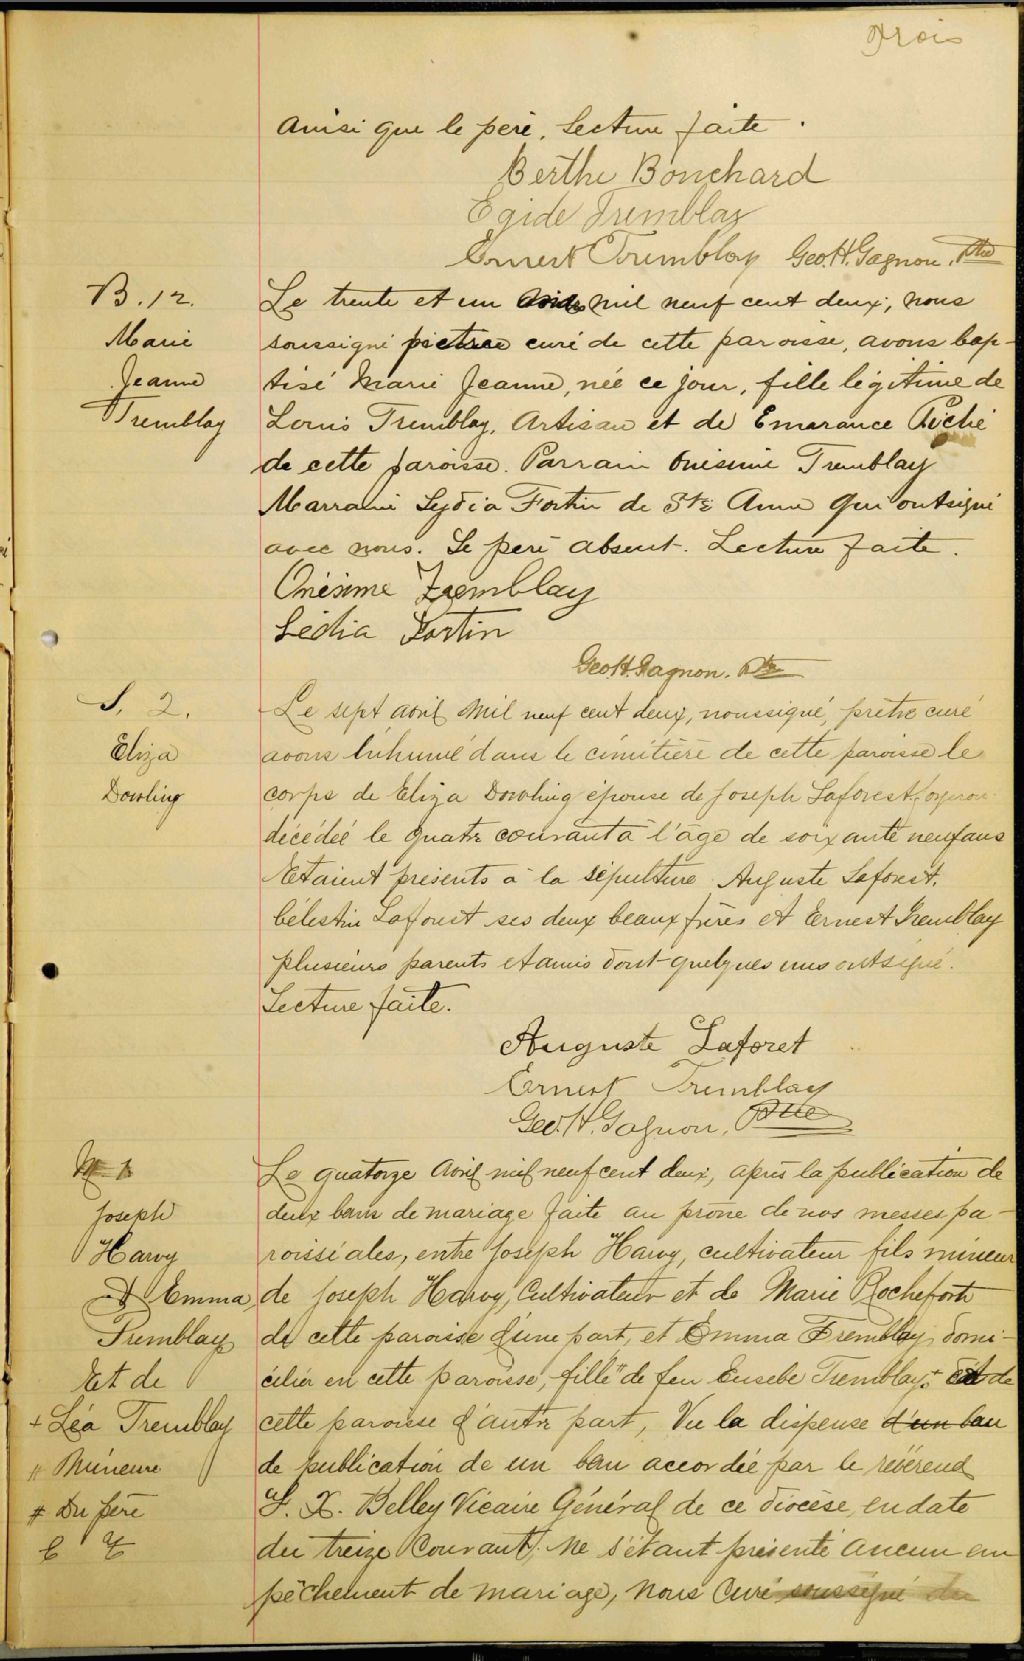 Trois
Ainsi que le père. Lecture faite.
Berthe Bouchard
Egide Tremblay
Ernest Tremblay Geo. H. Gagnon. Ptre
B. 12.
Marie
Jeanne
Tremblay
Le trente et un mil neuf cent deux, nous
soussigné curé de cette paroisse, avons bap-
tisé Marie Jeanne, née ce jour, fille légitime de
Louis Tremblay, Artisan et de Emarance Piché
de cette paroisse. Parrain Onésime Tremblay
Marraine Lydia Fortin de Ste Anne qui ont signé
avec nous. Le père absent. Lecture faite.
Onésime Tremblay
Lédia Fortin
Geo. H. Gagnon. Ptre
S. 2.
Eliza
Dowling
Le sept avril mil neuf cent deux, noussigné, prêtre curé
avons inhumé dans le cimitière de cette paroisse le
corps de Eliza Dowling épouse de Joseph Laforest,
décédée le quatre courant à l'age de soixante neuf ans
Etaient présents à la sépulture Auguste Laforest,
Célestin Laforest ses deux beaux frères et Ernest Tremblay
plusieurs parents et amis dont quelques uns ont signé.
Lecture faite.
Auguste Laforet
Ernest Tremblay
Geo. H. Gagnon, Ptre
M 1
Joseph
Harvy
& Emma
Tremblay
Et de
+ Léa Tremblay
" Mineure
# Du père
Le quatorze Avril mil neuf cent deux, après la publication de
deux bans de mariage faite au prône de nos messes pa-
roissiales, entre Joseph Harvy, cultivateur fils mineur
de Joseph Harvy, Cultivateur et de Marie Rochefort
de cette paroisse d'une part, et Emma Tremblay, domi-
ciliée en cette paroisse, fille " de feu Eusebe Tremblay, + de
cette paroisse d'autre part, Vu la dispense d'un ban
de publication de un ban accordée par le révérend
F. X. Belley Vicaire Général de ce diocèse, en date
du treize courant. Ne s'étant présenté aucun em
pêchement de mariage, nous Curé soussigné du